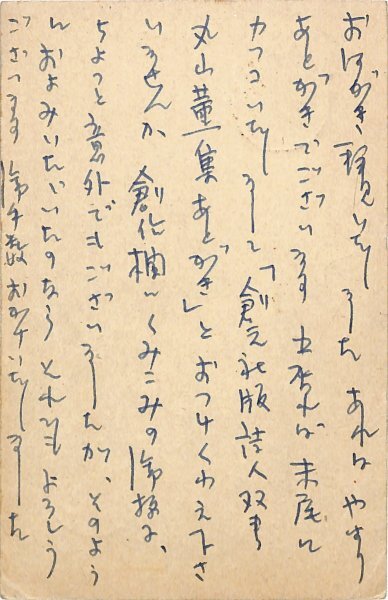 おはがき拝見いたしました あれは やはり
あとがきでございます 出来れば 末尾に
カッコいたしまして「創元社版詩人双書
丸山薫集あとがき」とおつけくわえ下さ
いませんか 創作欄にくみこみの御扱ひ、
ちょっと意外でもございましたが、そのよう
におよみいただいたのなら それでもよろしう
ございます 御手数おかけいたしました